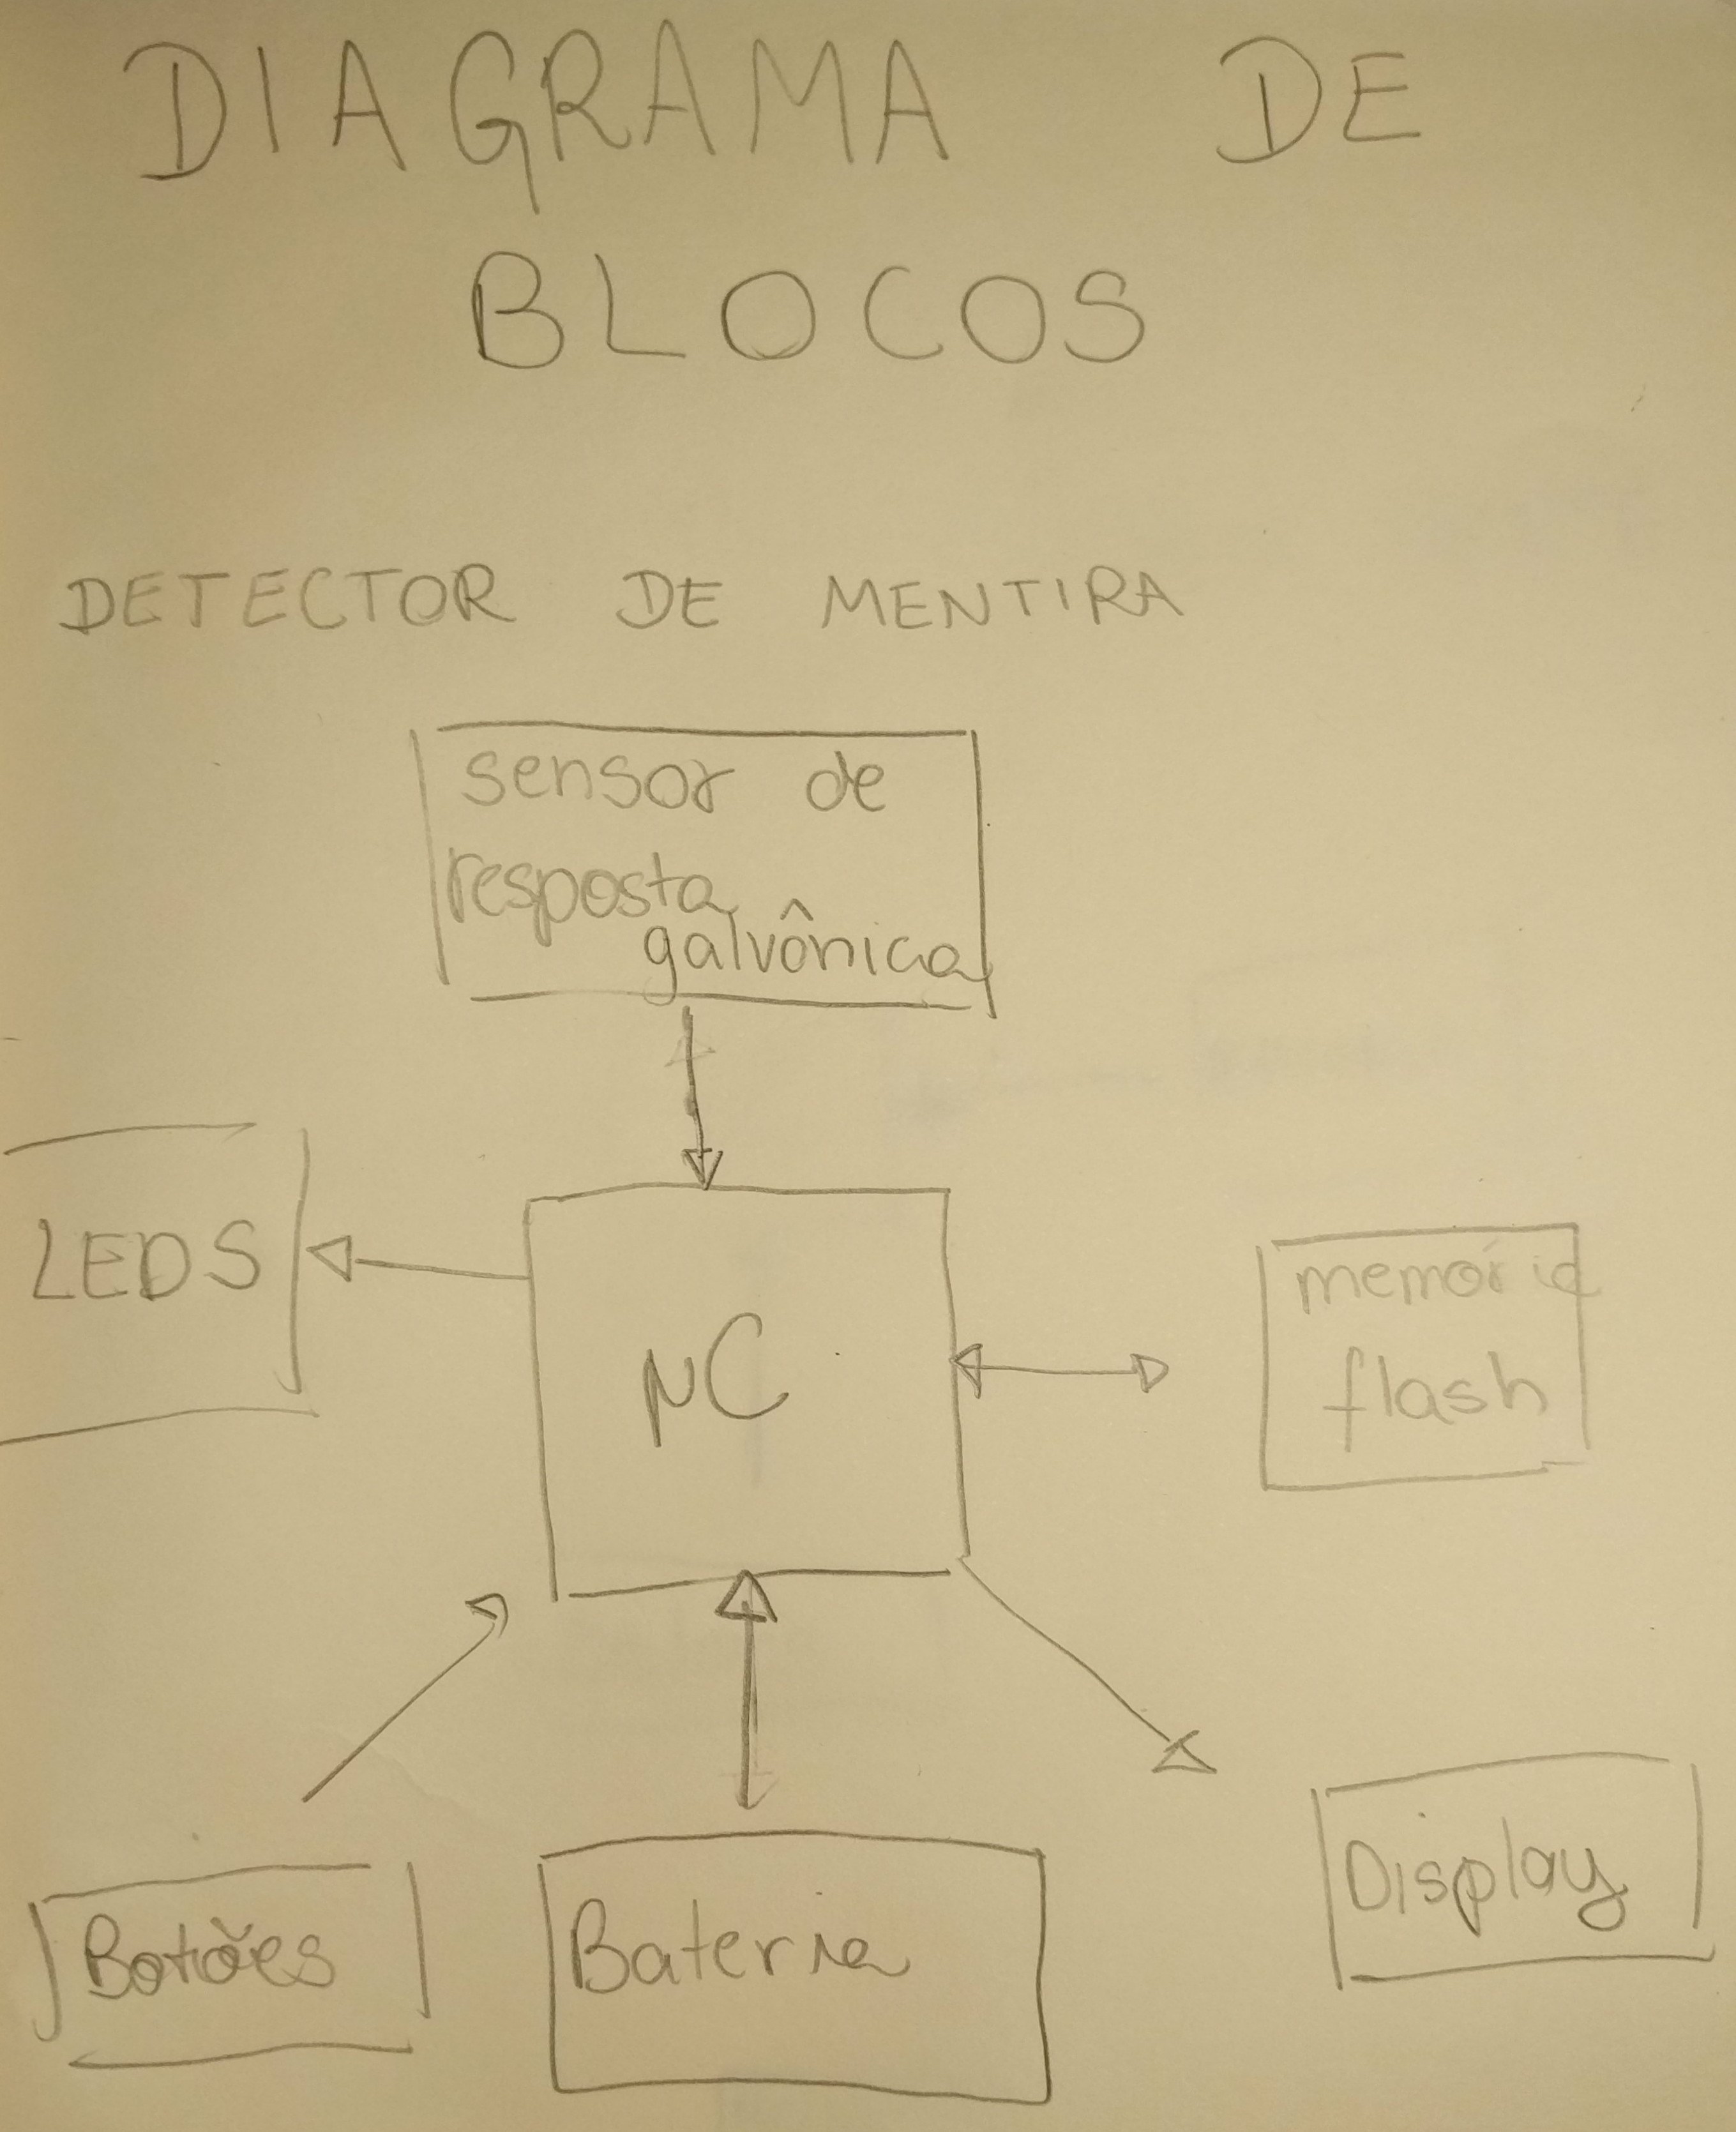 DIAGRAMA DE
BLOCOS
DETECTOR DE MENTIRA
sensor de
resposta
galvônica
LEDS
μC
memória
flash
Botões
Bateria
Display